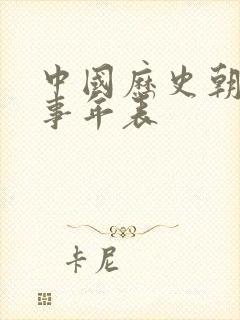 中國歷史朝
事年表
卡尼